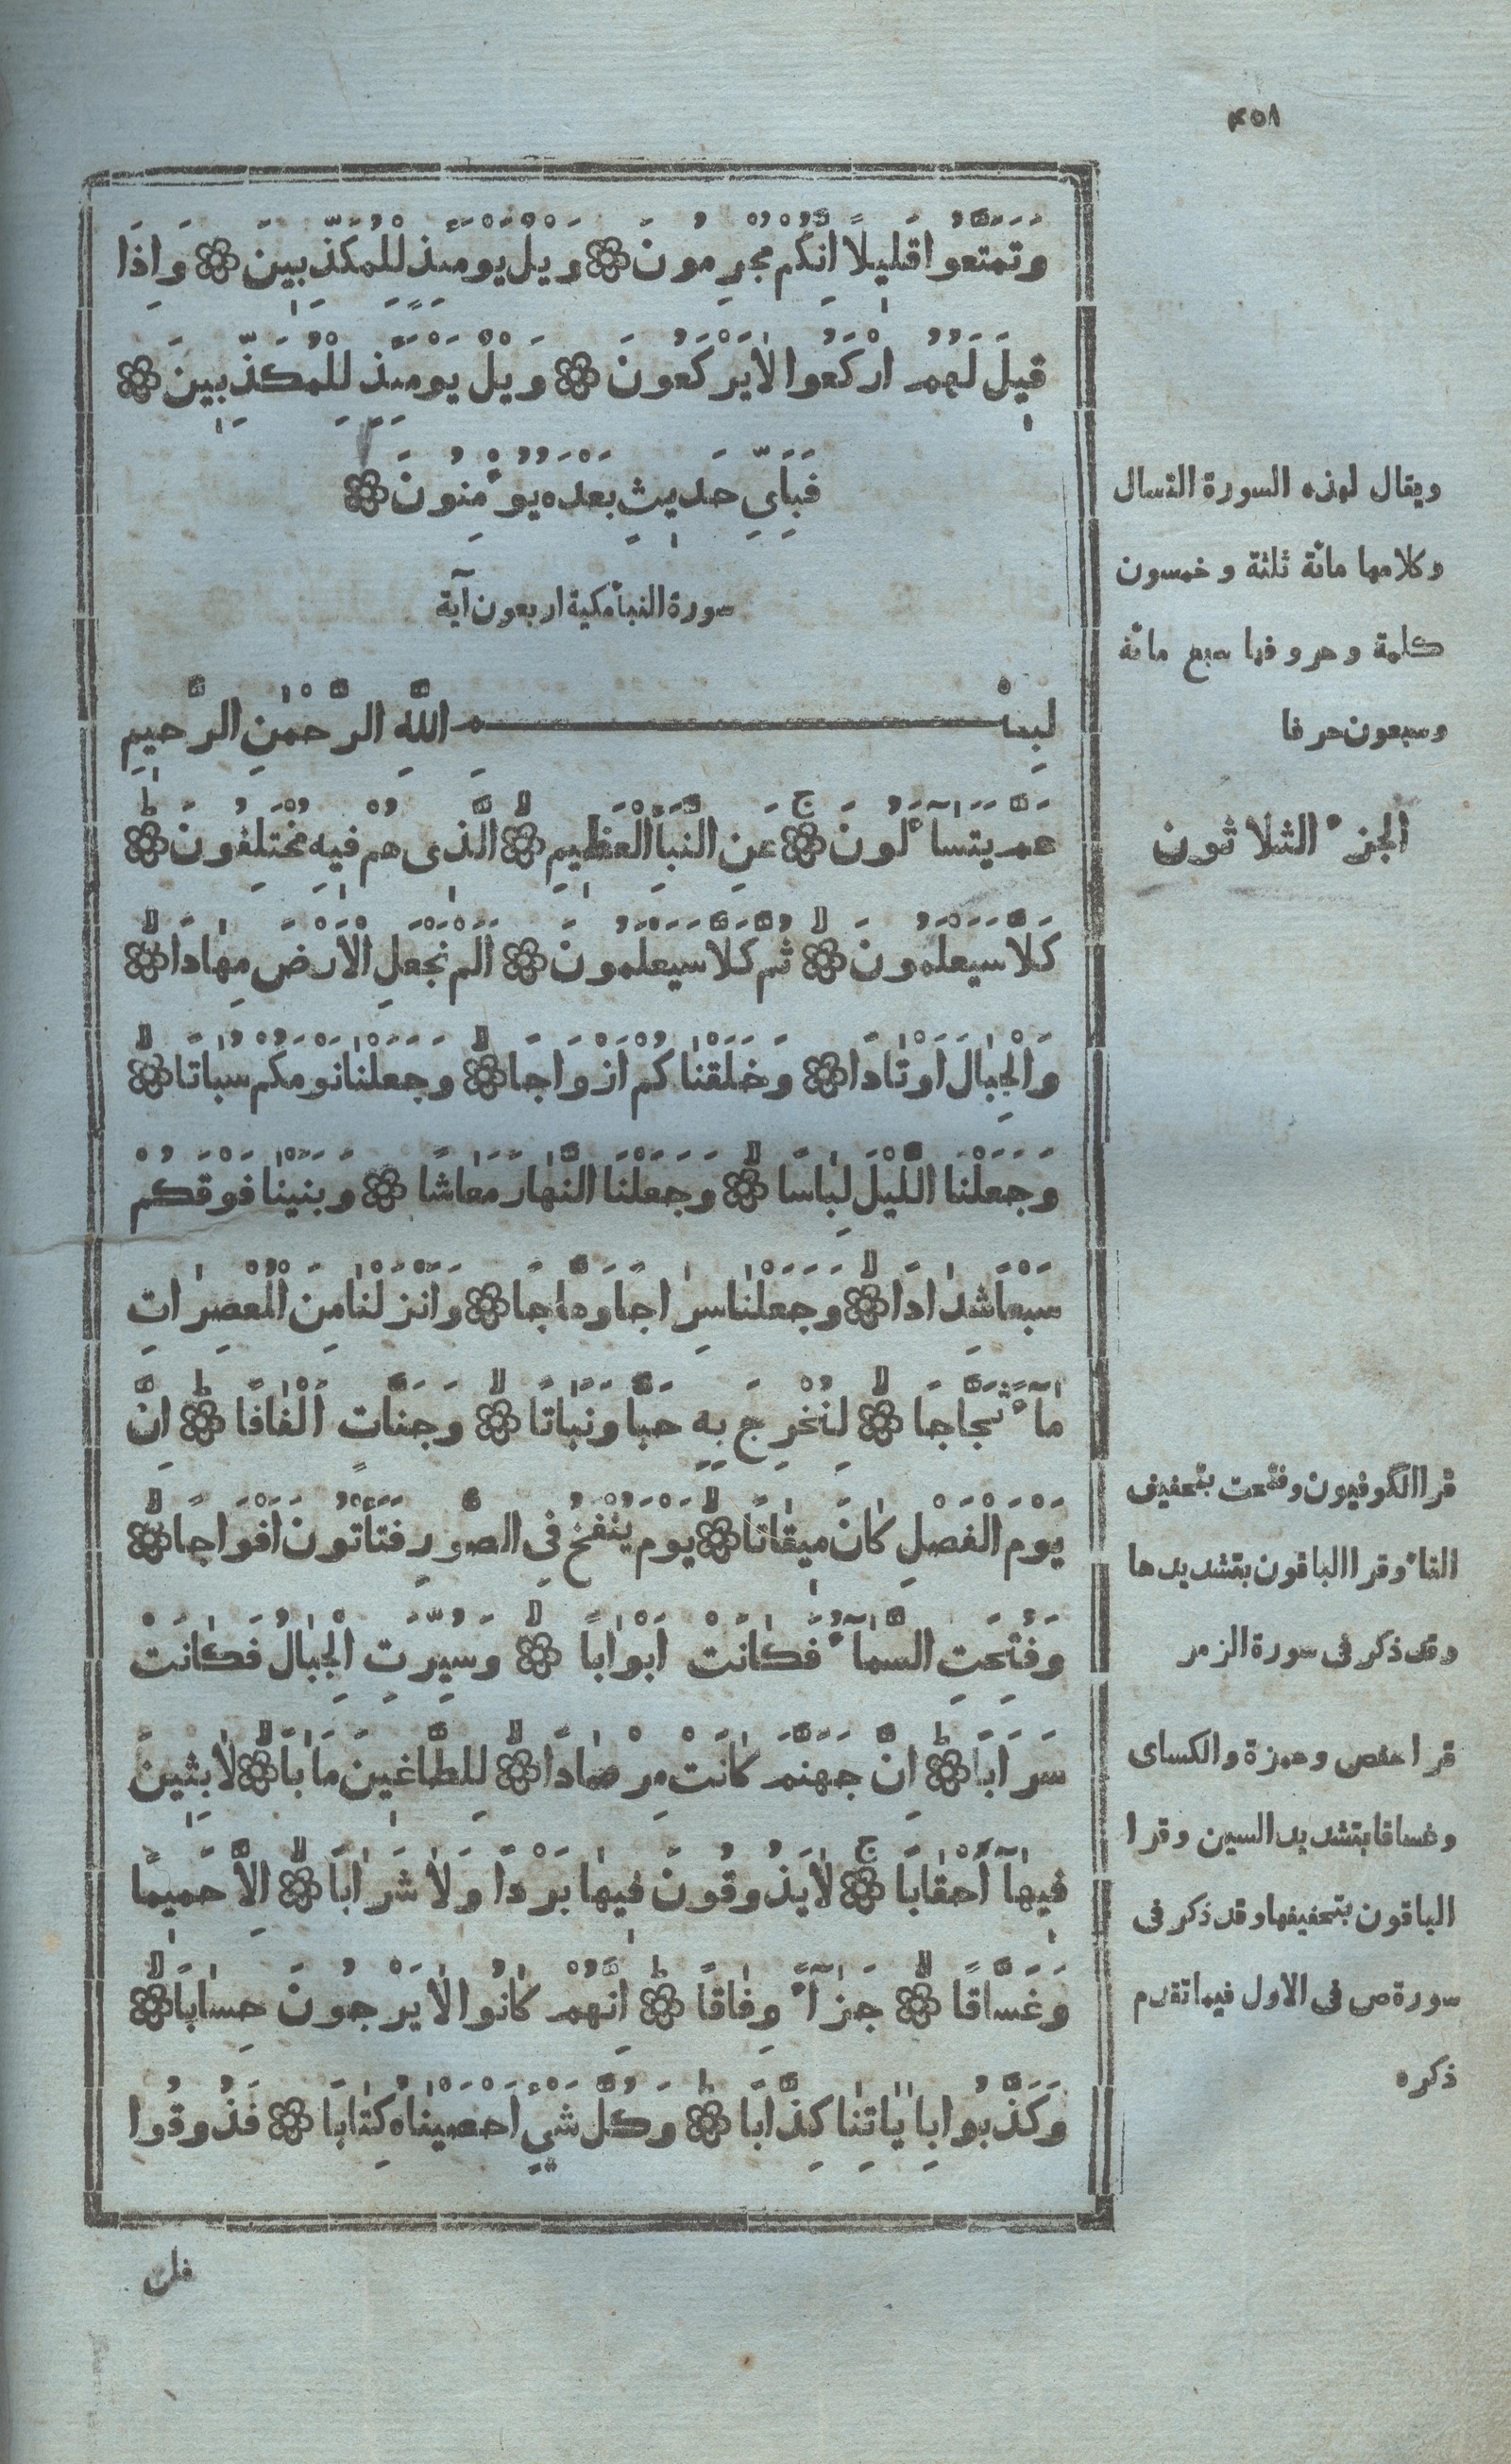 ٤٥٨
وَتَمَتَّعُوا قَلِيلًا اِنَّكُمْ مُجْرِمُونَ ۞ وَيْلٌ يَوْمَئِذٍ لِلْمُكَذِّبِينَ ۞ وَاِذَا
قِيلَ لَهُمُ ارْكَعُوا لَا يَرْكَعُونَ ۞ وَيْلٌ يَوْمَئِذٍ لِلْمُكَذِّبِينَ ۞
فَبِاَىِّ حَدِيثٍ بَعْدَهُ يُوْمِنُونَ ۞
سورة النبأ مكية اربعون آية
بِسْمِ اللَّهِ الرَّحْمٰنِ الرَّحِيمِ
عَمَّ يَتَسَآءَلُونَ ۞ ج عَنِ النَّبَأِ الْعَظِيمِ ۞ لا الَّذِى هُمْ فِيهِ مُخْتَلِفُونَ ۞ ط
كَلَّا سَيَعْلَمُونَ ۞ لا ثُمَّ كَلَّا سَيَعْلَمُونَ ۞ اَلَمْ نَجْعَلِ الْاَرْضَ مِهٰادًا ۞ لا
وَالْجِبٰالَ اَوْتٰادًا ۞ وَخَلَقْنٰاكُمْ اَزْوَاجًا ۞ لا وَجَعَلْنٰا نَوْمَكُمْ سُبَاتًا ۞ لا
وَجَعَلْنَا اللَّيْلَ لِبٰاسًا ۞ لا وَجَعَلْنَا النَّهٰارَ مَعٰاشًا ۞ وَبَنَيْنٰا فَوْقَكُمْ
سَبْعًا شِدٰادًا ۞ لا وَجَعَلْنٰا سِرٰاجًا وَهَّاجًا ۞ وَاَنْزَلْنٰا مِنَ الْمُعْصِرٰاتِ
مٰآءً ثَجَّاجًا ۞ لا لِنُخْرِجَ بِهِ حَبًّا وَنَبٰاتًا ۞ لا وَجَنَّاتٍ اَلْفٰافًا ۞ ط اِنَّ
يَوْمَ الْفَصْلِ كٰانَ مِيقٰاتًا ۞ لا يَوْمَ يُنْفَخُ فِى الصُّورِ فَتَأْتُونَ اَفْوَاجًا ۞ لا
وَفُتِحَتِ السَّمٰآءُ فَكٰانَتْ اَبْوٰابًا ۞ لا وَسُيِّرَتِ الْجِبٰالُ فَكٰانَتْ
سَرَابًا ۞ ط اِنَّ جَهَنَّمَ كٰانَتْ مِرْصٰادًا ۞ لا لِلطَّاغِينَ مَاٰبًا ۞ لا لٰابِثِينَ
فِيهٰآ اَحْقٰابًا ۞ ج لٰا يَذُوقُونَ فِيهٰا بَرْدًا وَلٰا شَرٰابًا ۞ لا اِلَّا حَمِيمًا
وَغَسَّاقًا ۞ لا جَزٰآءً وِفٰاقًا ۞ ط اِنَّهُمْ كٰانُوا لٰا يَرْجُونَ حِسٰابًا ۞ لا
وَكَذَّبُوا بِاٰيٰاتِنٰا كِذَّابًا ۞ ط وَكُلَّ شَىْءٍ اَحْصَيْنٰاهُ كِتٰابًا ۞ فَذُوقُوا
فلن
ويقال لهذه السورة التسال
وكلامها مائة ثلثة وخمسون
كلمة وحروفها سبع مائة
وسبعون حرفا
الجزء الثلاثون
قرا الكوفيون وفتحت بتخفيف
التاء وقرا الباقون بتشديدها
وقد ذكر فى سورة الزمر
قرا حفص وحمزة والكساى
وغساقا بتشديد السين وقرا
الباقون بتخفيفها وقد ذكر فى
سورة ص فى الاول فيما تقدم
ذكره